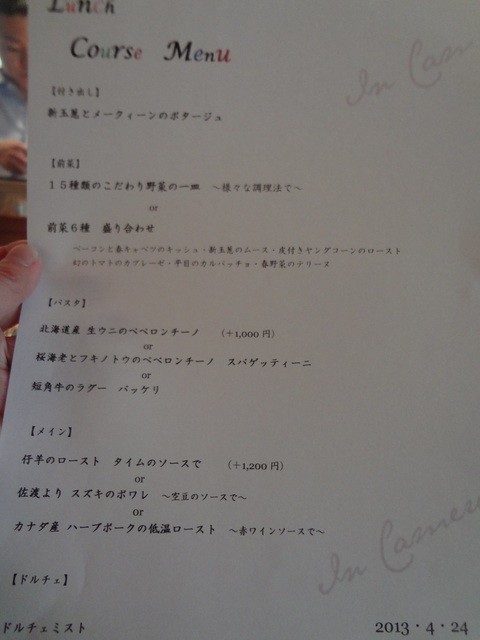 Lunch
Course Menu
In Cam
【付き出し】
新玉葱とメークィーンのポタージュ
【前菜】
15種類のこだわり野菜の一皿 ～様々な調理法で～
or
前菜6種 盛り合わせ
ベーコンと春キャベツのキッシュ・新玉葱のムース・皮付きヤングコーンのロースト
幻のトマトのカプレーゼ・平目のカルパッチョ・春野菜のテリーヌ
【パスタ】
北海道産 生ウニのペペロンチーノ (+1,000円)
or
桜海老とフキノトウのペペロンチーノ スパゲッティーニ
or
短角牛のラグー パッケリ
【メイン】
仔羊のロースト タイムのソースで (+1,200円)
or
佐渡より スズキのポワレ ～空豆のソースで～
or
カナダ産 ハーブポークの低温ロースト ～赤ワインソースで～
In Camera
【ドルチェ】
ドルチェミスト
2013・4・24